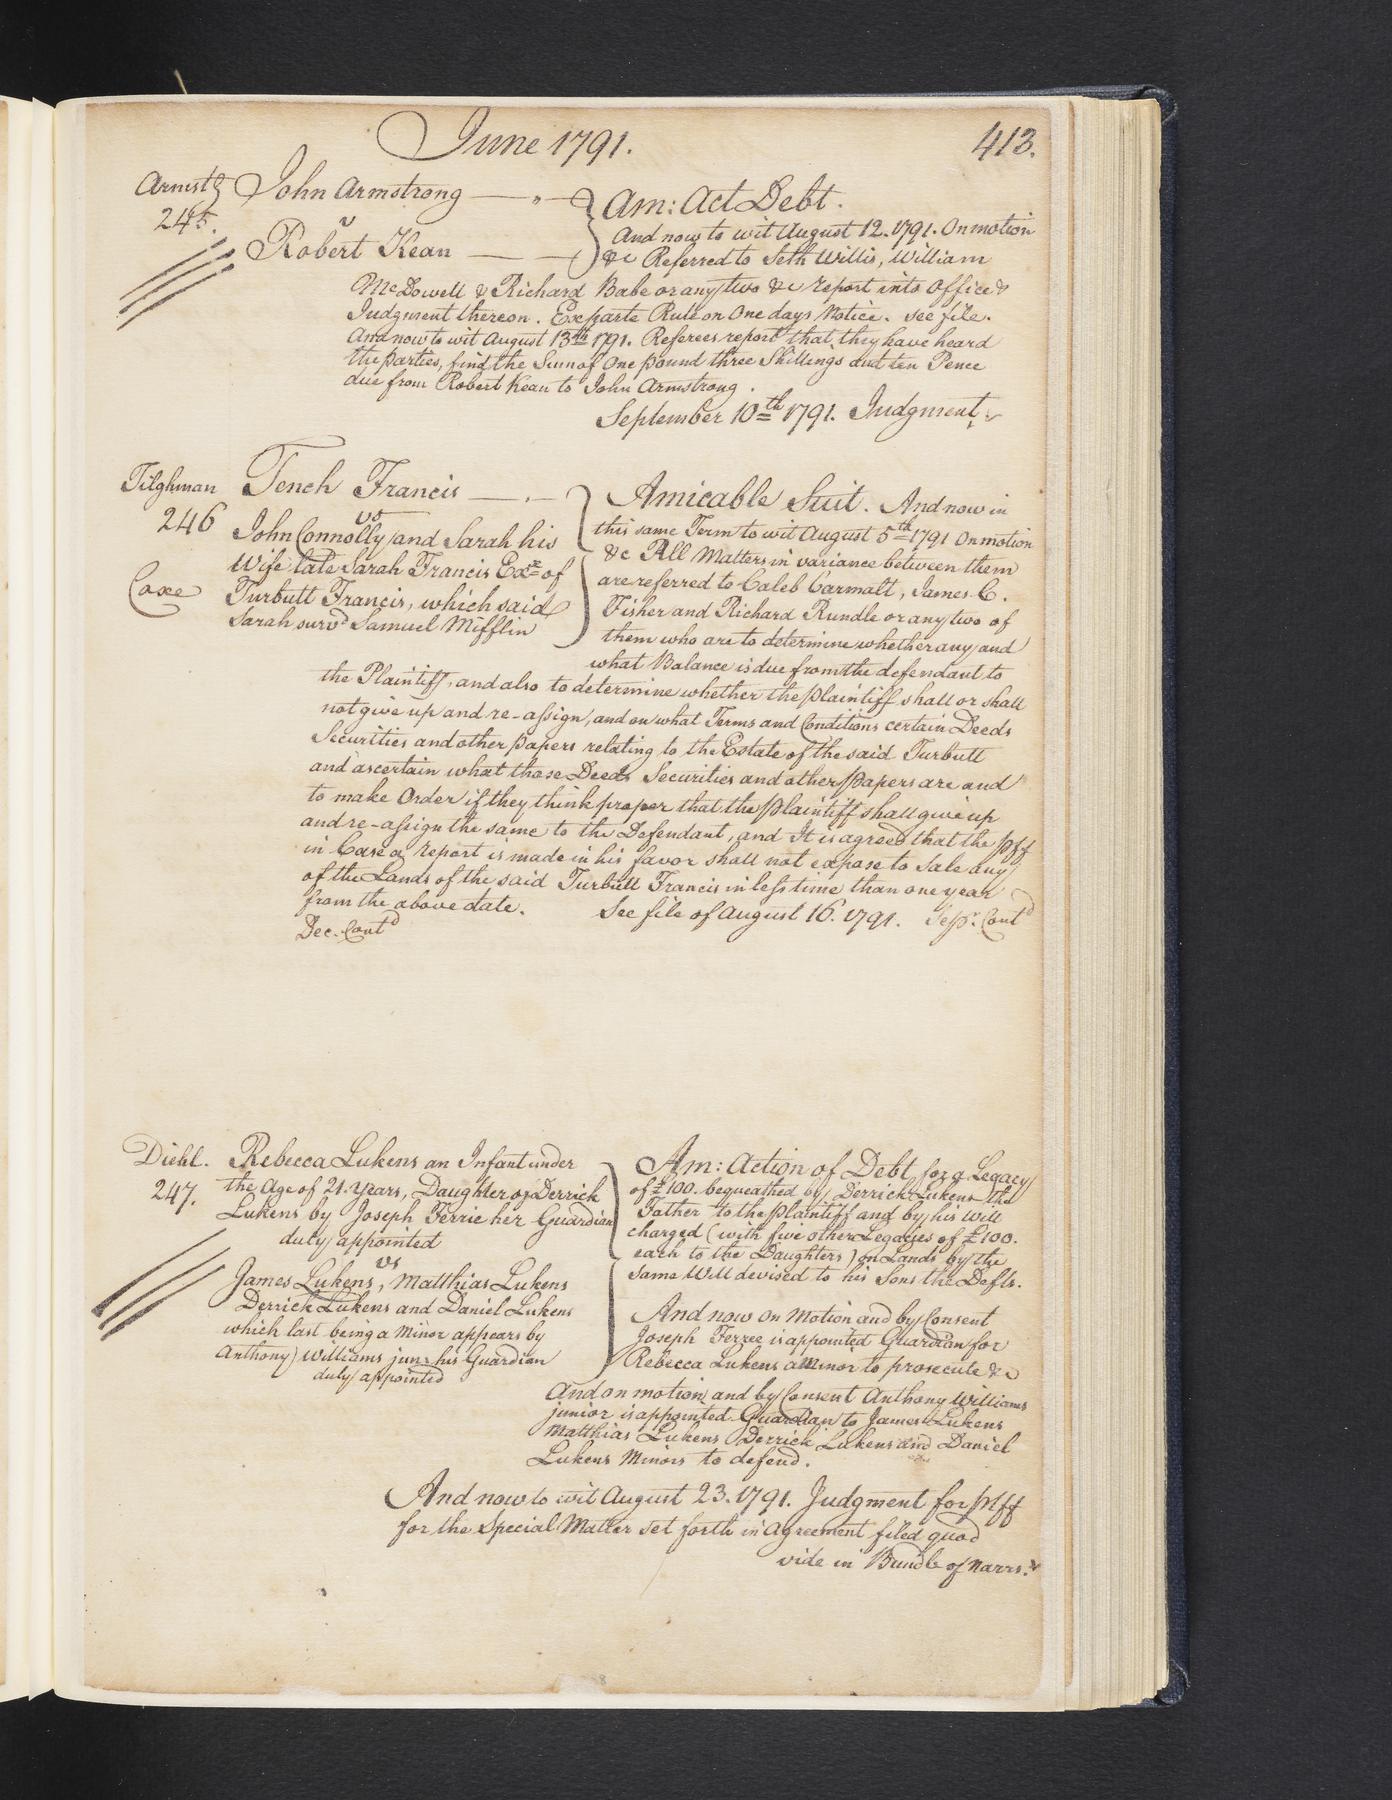 June 1791.
413.
Armstg
245.
John Armstrong
v
Robert Kean
Am: Act Debt.
And now to wit August 12. 1791. On motion
&c Referred to Seth Willis, William
McDowell & Richard Babe or any two &c report into Office &
Judgment thereon. Exparte Rule on One days Notice. See file.
And now to wit August 13th 1791. Referees report that they have heard
the parties, find the Sum of One pound three Shillings and ten Pence
due from Robert Kean to John Armstrong.
September 10th 1791. Judgment
Tilghman
246
Coxe
Tench Francis
vs
John Connolly and Sarah his
Wife late Sarah Francis Exx of
Turbutt Francis, which said
Sarah survd Samuel Mifflin
Amicable Suit. And now in
this same Term to wit August 5th 1791 On motion
&c All Matters in variance between them
are referred to Caleb Carmalt, James C.
Fisher and Richard Rundle or any two of
them who are to determine whether any and
what Balance is due from the defendant to
the Plaintiff, and also to determine whether the plaintiff shall or shall
not give up and re-assign, and on what Terms and Conditions certain Deeds
Securities and other papers relating to the Estate of the said Turbutt
and ascertain what those Deeds Securities and other Papers are and
to make Order if they think proper that the plaintiff shall give up
and re-assign the same to the Defendant, and It is agreed that the plff
in Case a report is made in his favor shall not expose to Sale any
of the Lands of the said Turbutt Francis in less time than one year
from the above date. See file of August 16. 1791. Sepr. Contd
Dec. Contd
Diehl.
247.
Rebecca Lukens an Infant under
the Age of 21. Years, Daughter of Derrick
Lukens by Joseph Ferrie her Guardian
duly appointed
vs
James Lukens, Matthias Lukens
Derrick Lukens and Daniel Lukens
which last being a Minor appears by
Anthony Williams junr his Guardian
duly appointed
Am: Action of Debt for a Legacy
of £100. bequeathed by Derrick Lukens the
Father to the plaintiff and by his Will
charged (with five other Legacies of £100.
each to the Daughters) on Lands by the
same Will devised to his Sons the Defts.
And now On Motion and by Consent
Joseph Ferree is appointed Guardian for
Rebecca Lukens a Minor to prosecute &c
And on motion and by Consent Anthony Williams
junior is appointed Guardian to James Lukens
Matthias Lukens Derrick Lukens and Daniel
Lukens Minors to defend.
And now to wit August 23. 1791. Judgment for plff
for the Special Matter set forth in Agreement filed quod
vide in Bundle of Narrs.